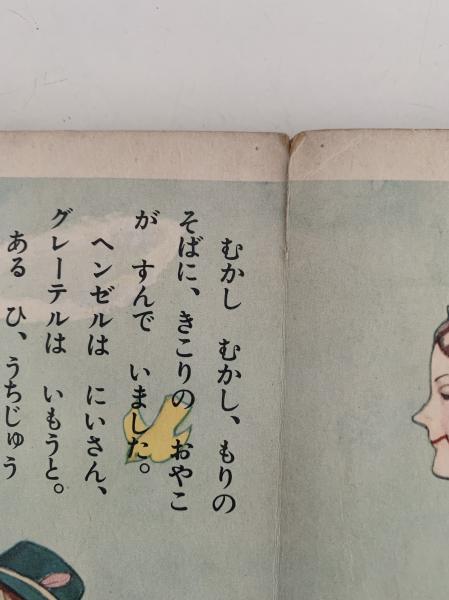 むかし　むかし、もりの
そばに、きこりの　おやこ
が　すんで　いました。
ヘンゼルは　にいさん、
グレーテルは　いもうと。
ある　ひ、うちじゅう